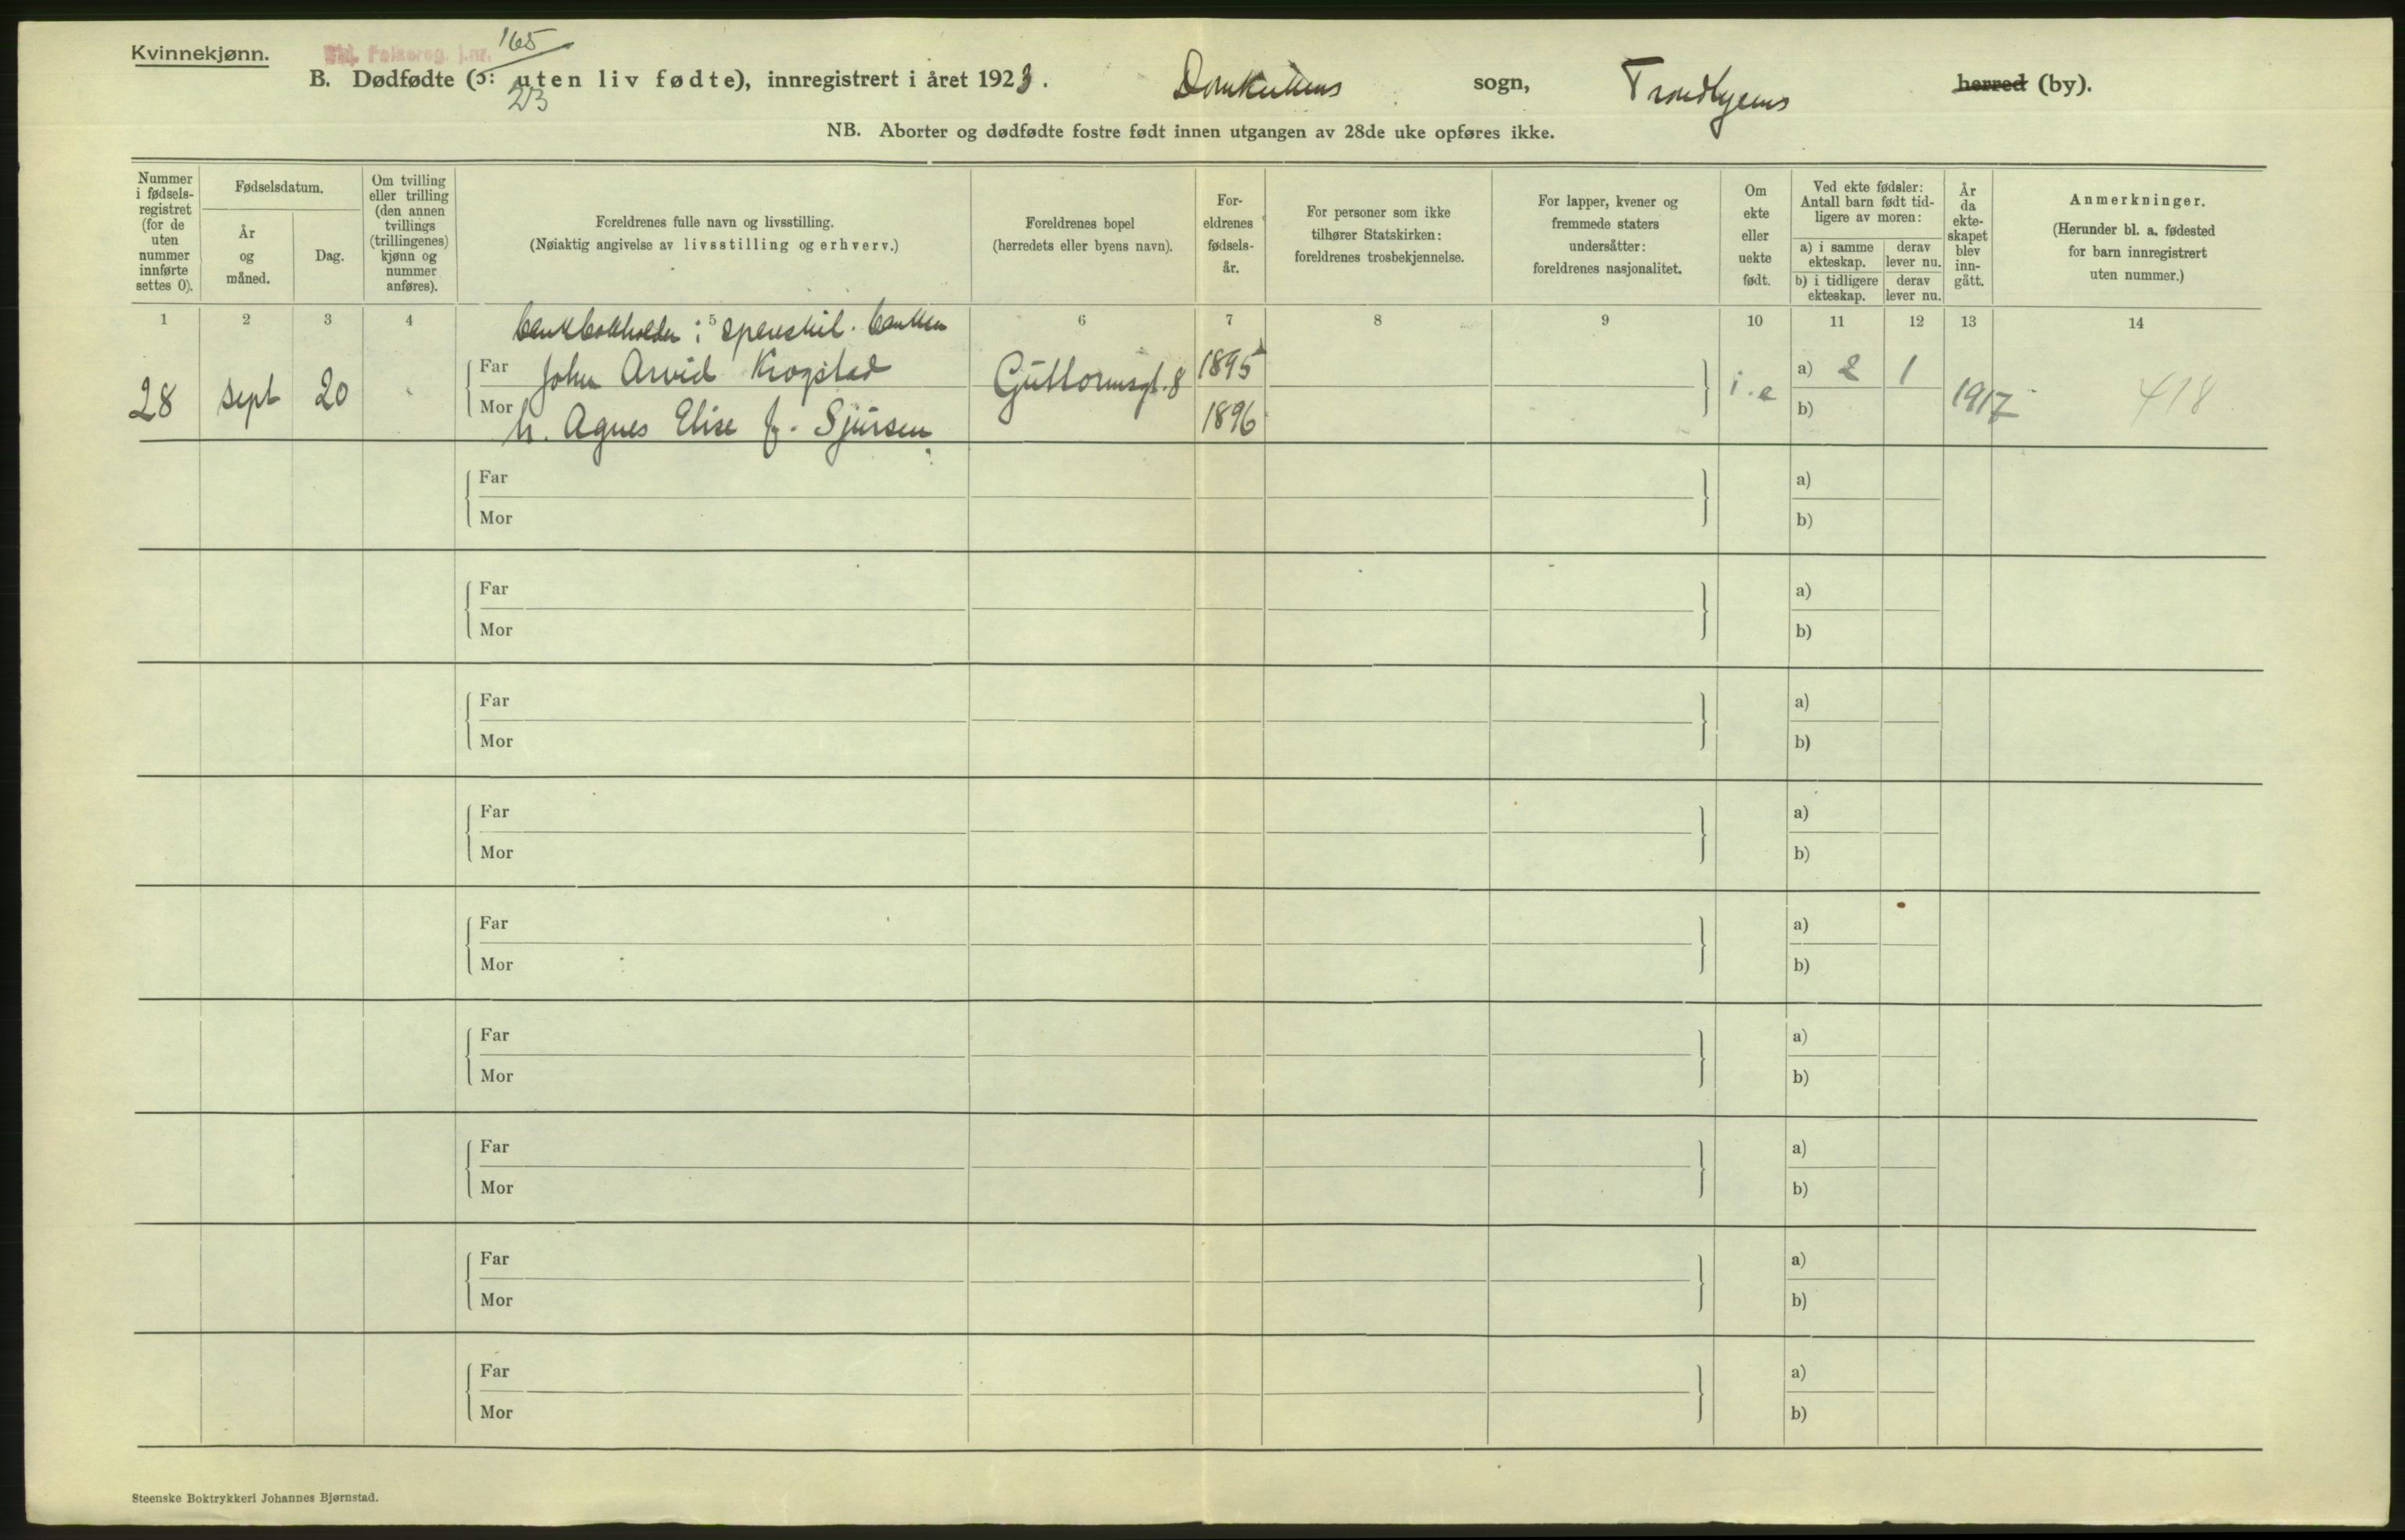 Kvinnekjønn.
165
B. Dødfødte (ɔ: uten liv fødte), innregistrert i året 1923. Domkirkens sogn, Trondhjems herred (by).
213
NB. Aborter og dødfødte fostre født innen utgangen av 28de uke opføres ikke.
Nummer i fødselsregistret (for de uten nummer innførte settes 0).
Fødselsdatum.
År og måned.
Dag.
Om tvilling eller trilling (den annen tvillings (trillingenes) kjønn og nummer anføres).
Foreldrenes fulle navn og livsstilling.
(Nøiaktig angivelse av livsstilling og erhverv.)
Foreldrenes bopel
(herredets eller byens navn).
Foreldrenes fødselsår.
For personer som ikke tilhører Statskirken: foreldrenes trosbekjennelse.
For lapper, kvener og fremmede staters undersåtter: foreldrenes nasjonalitet.
Om ekte eller uekte født.
Ved ekte fødsler: Antall barn født tidligere av moren:
a) i samme ekteskap. derav lever nu.
b) i tidligere ekteskap. derav lever nu.
År da ekteskapet blev inngått.
Anmerkninger.
(Herunder bl. a. fødested for barn innregistrert uten nummer.)
1 2 3 4 5 6 7 8 9 10 11 12 13 14
bankbokholder i spareskil. banken
28 sept 20 Far John Arvid Krogstad Guttormsgt. 8 1895 i.e a) 2 1 1917 418
Mor h. Agnes Elise f. Sjursen 1896 b)
Far a)
Mor b)
Far a)
Mor b)
Far a)
Mor b)
Far a)
Mor b)
Far a)
Mor b)
Far a)
Mor b)
Far a)
Mor b)
Far a)
Mor b)
Far a)
Mor b)
Steenske Boktrykkeri Johannes Bjørnstad.